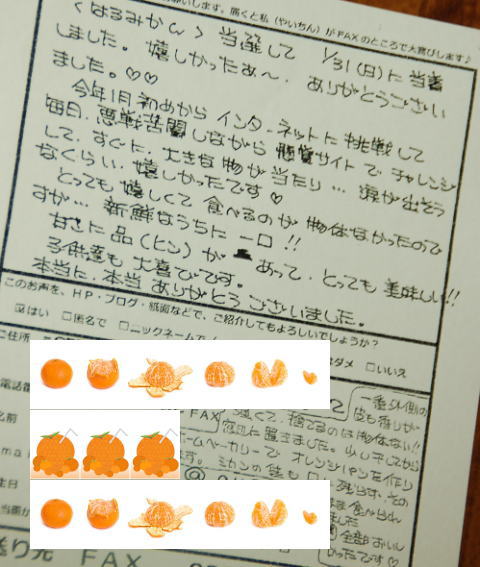 願いします。届くと私（やいちん）がFAXのところで大喜びします♪
〈はるみかん〉当選して 1/31(日)に当着
しました。嬉しかったあ〜、ありがとうござい
ました。♡♡
今年1月初めから インターネットに挑戦して
毎日、悪戦苦闘しながら 懸賞サイトで チャレンジ
して、すぐに、大きな物が当たり… 涙が出そう
なくらい、嬉しかったです♡
とっても 嬉しくて 食べるのが 勿体なかったので
すが… 新鮮なうちに 一口!!
甘さに 品(ヒン)が あって、とっても 美味しい!!
子供達も 大喜びです。
本当に、本当 ありがとう ございました。
このお声を、HP・ブログ・紙面などで、ご紹介してもよろしいでしょうか？
☑はい □匿名で □ニックネームで
はダメ □いいえ
ご住所
電話番
名前
mai
生日
当選
一番外側の
皮も香りが
強くて、捨てるのは勿体ない!!
FAX
窓辺に置きました。少し干してから
ホームベーカリーで オレンジパンを作り
ます。ミカンの
食べられ
ました
全部おいし
かったです♡
送り先 FAX